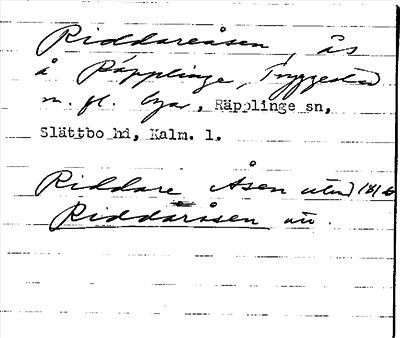 Riddareåsen, ås
å Räpplinge, Tryggestad
m. fl. byar, Räpplinge sn,
Slättbo hd, Kalm. l.
Riddare Åsen
Riddaråsen